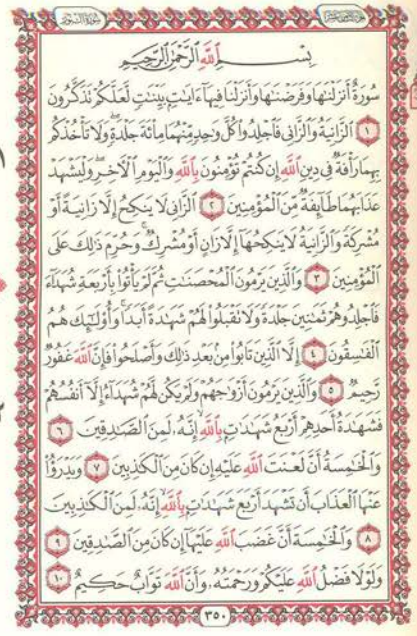 الجزء الثامن عشر سورة النور
بِسْمِ ٱللَّهِ ٱلرَّحْمَٰنِ ٱلرَّحِيمِ
سُورَةٌ أَنزَلْنَٰهَا وَفَرَضْنَٰهَا وَأَنزَلْنَا فِيهَآ ءَايَٰتٍۭ بَيِّنَٰتٍ لَّعَلَّكُمْ تَذَكَّرُونَ
١ ٱلزَّانِيَةُ وَٱلزَّانِى فَٱجْلِدُوا۟ كُلَّ وَٰحِدٍ مِّنْهُمَا مِا۟ئَةَ جَلْدَةٍ ۖ وَلَا تَأْخُذْكُم
بِهِمَا رَأْفَةٌ فِى دِينِ ٱللَّهِ إِن كُنتُمْ تُؤْمِنُونَ بِٱللَّهِ وَٱلْيَوْمِ ٱلْءَاخِرِ ۖ وَلْيَشْهَدْ
عَذَابَهُمَا طَآئِفَةٌ مِّنَ ٱلْمُؤْمِنِينَ ٢ ٱلزَّانِى لَا يَنكِحُ إِلَّا زَانِيَةً أَوْ
مُشْرِكَةً وَٱلزَّانِيَةُ لَا يَنكِحُهَآ إِلَّا زَانٍ أَوْ مُشْرِكٌ ۚ وَحُرِّمَ ذَٰلِكَ عَلَى
ٱلْمُؤْمِنِينَ ٣ وَٱلَّذِينَ يَرْمُونَ ٱلْمُحْصَنَٰتِ ثُمَّ لَمْ يَأْتُوا۟ بِأَرْبَعَةِ شُهَدَآءَ
فَٱجْلِدُوهُمْ ثَمَٰنِينَ جَلْدَةً وَلَا تَقْبَلُوا۟ لَهُمْ شَهَٰدَةً أَبَدًا ۚ وَأُو۟لَٰٓئِكَ هُمُ
ٱلْفَٰسِقُونَ ٤ إِلَّا ٱلَّذِينَ تَابُوا۟ مِنۢ بَعْدِ ذَٰلِكَ وَأَصْلَحُوا۟ فَإِنَّ ٱللَّهَ غَفُورٌ
رَّحِيمٌ ٥ وَٱلَّذِينَ يَرْمُونَ أَزْوَٰجَهُمْ وَلَمْ يَكُن لَّهُمْ شُهَدَآءُ إِلَّآ أَنفُسُهُمْ
فَشَهَٰدَةُ أَحَدِهِمْ أَرْبَعُ شَهَٰدَٰتٍۭ بِٱللَّهِ ۙ إِنَّهُۥ لَمِنَ ٱلصَّٰدِقِينَ ٦
وَٱلْخَٰمِسَةُ أَنَّ لَعْنَتَ ٱللَّهِ عَلَيْهِ إِن كَانَ مِنَ ٱلْكَٰذِبِينَ ٧ وَيَدْرَؤُا۟
عَنْهَا ٱلْعَذَابَ أَن تَشْهَدَ أَرْبَعَ شَهَٰدَٰتٍۭ بِٱللَّهِ ۙ إِنَّهُۥ لَمِنَ ٱلْكَٰذِبِينَ
٨ وَٱلْخَٰمِسَةَ أَنَّ غَضَبَ ٱللَّهِ عَلَيْهَآ إِن كَانَ مِنَ ٱلصَّٰدِقِينَ ٩
وَلَوْلَا فَضْلُ ٱللَّهِ عَلَيْكُمْ وَرَحْمَتُهُۥ وَأَنَّ ٱللَّهَ تَوَّابٌ حَكِيمٌ ١٠
٣٥٠